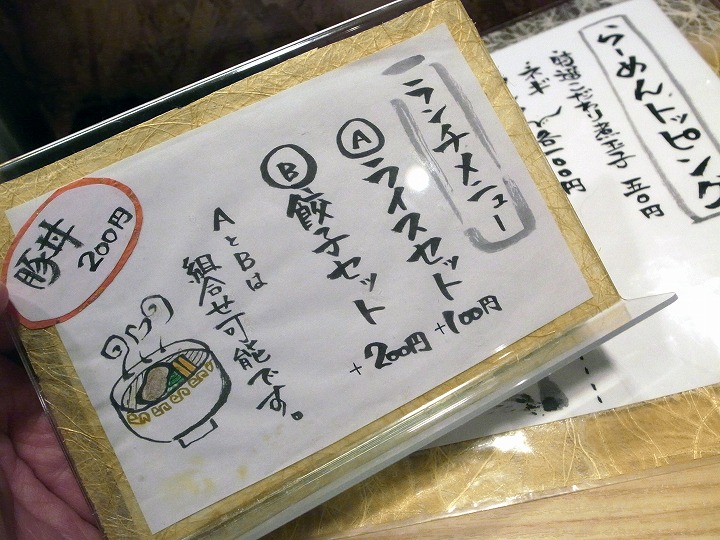 ランチメニュー
Ⓐ ライスセット +100円
Ⓑ 餃子セット +200円
AとBは
組合せ可能です。
豚丼
200円
らーめんトッピング
煮玉子 五〇円
ネギ